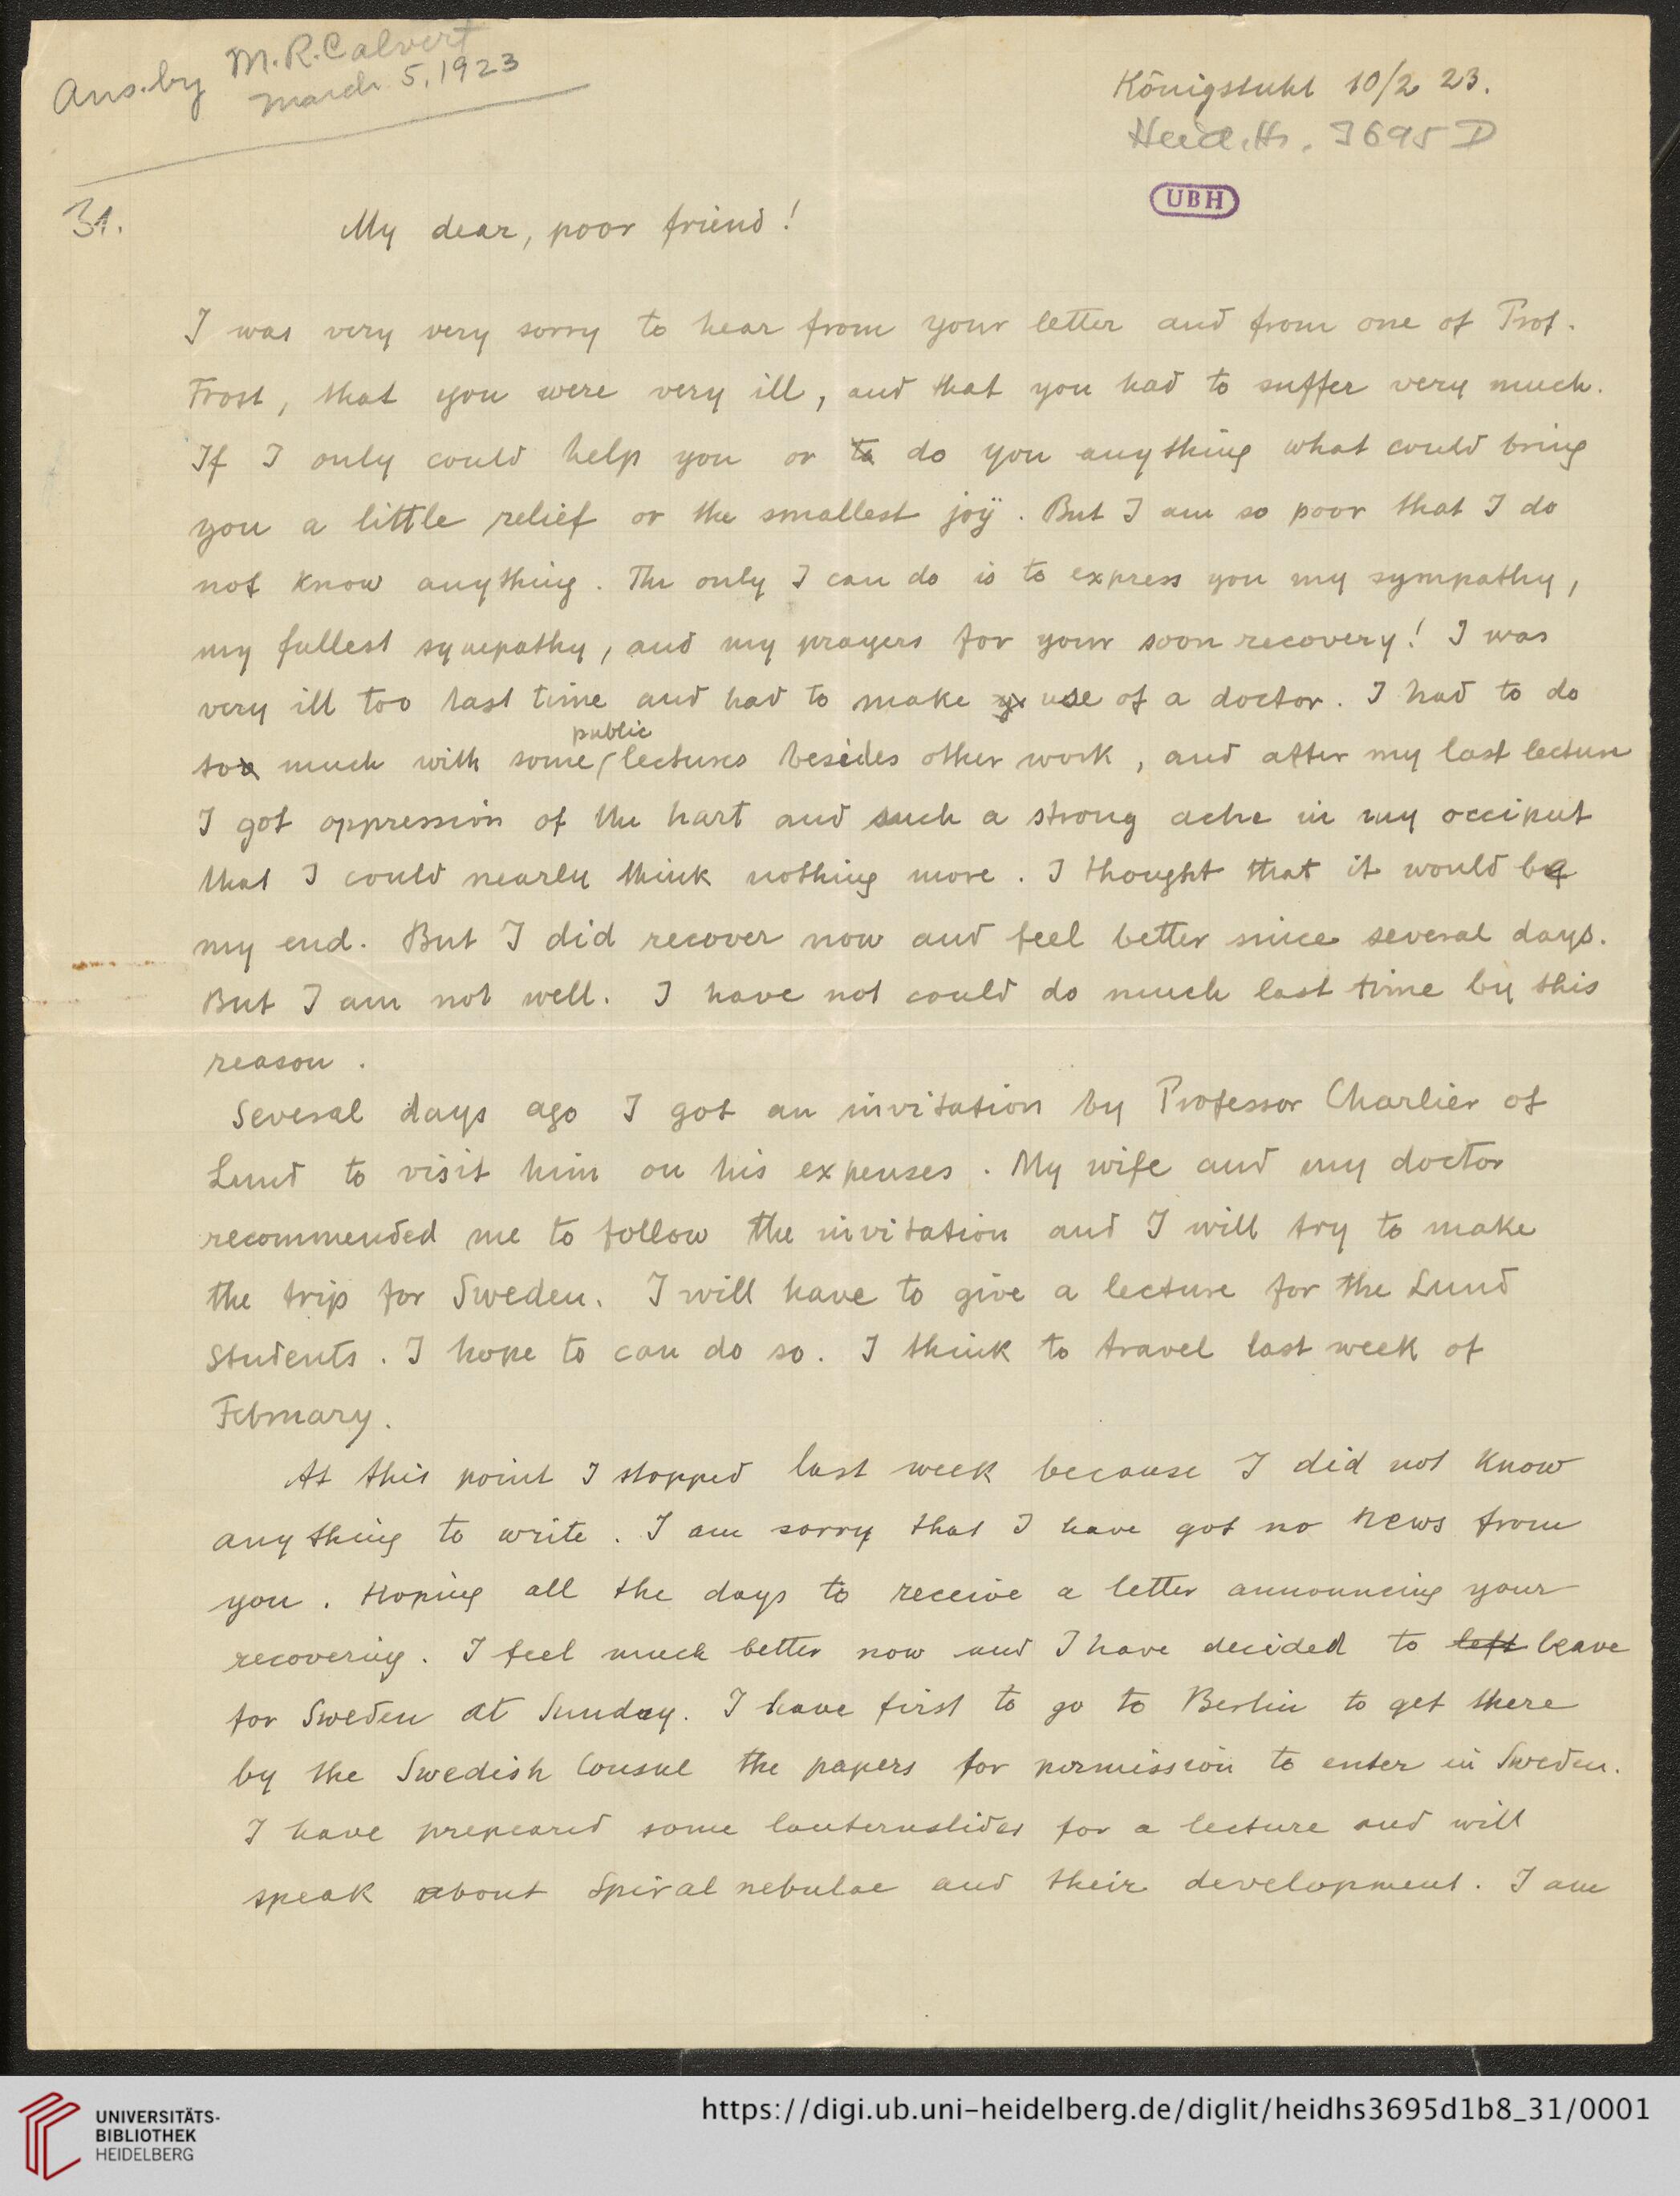 Ans. by M. R. Calvert
March 5, 1923
Königstuhl 10/2 23.
Heid. Hs. 3695 D
UBH
31.
My dear, poor friend!
I was very very sorry to hear from your letter and from one of Prof.
Frost, that you were very ill, and that you had to suffer very much.
If I only could help you or to do you anything what could bring
you a little relief or the smallest joÿ. But I am so poor that I do
not know anything. The only I can do is to express you my sympathy,
my fullest sympathy, and my prayers for your soon recovery! I was
very ill too last time and had to make use of a doctor. I had to do
public
too much with some lectures besides other work, and after my last lecture
I got oppression of the hart and such a strong ache in my occiput
that I could nearly think nothing more. I thought that it would be
my end. But I did recover now and feel better since several days.
But I am not well. I have not could do much last time by this
reason.
Several days ago I got an invitation by Professor Charlier of
Lund to visit him on his expenses. My wife and my doctor
recommended me to follow the invitation and I will try to make
the trip for Sweden. I will have to give a lecture for the Lund
Students. I hope to can do so. I think to travel last week of
February.
At this point I stopped last week because I did not know
anything to write. I am sorry that I have got no news from
you. Hoping all the days to receive a letter announcing your
recovering. I feel much better now and I have decided to left leave
for Sweden at Sunday. I have first to go to Berlin to get there
by the Swedish Consul the papers for permission to enter in Sweden.
I have prepeared some lanternslides for a lecture and will
speak about Spiral nebulae and their development. I am
UNIVERSITÄTS-
BIBLIOTHEK
HEIDELBERG
https://digi.ub.uni-heidelberg.de/diglit/heidhs3695d1b8_31/0001